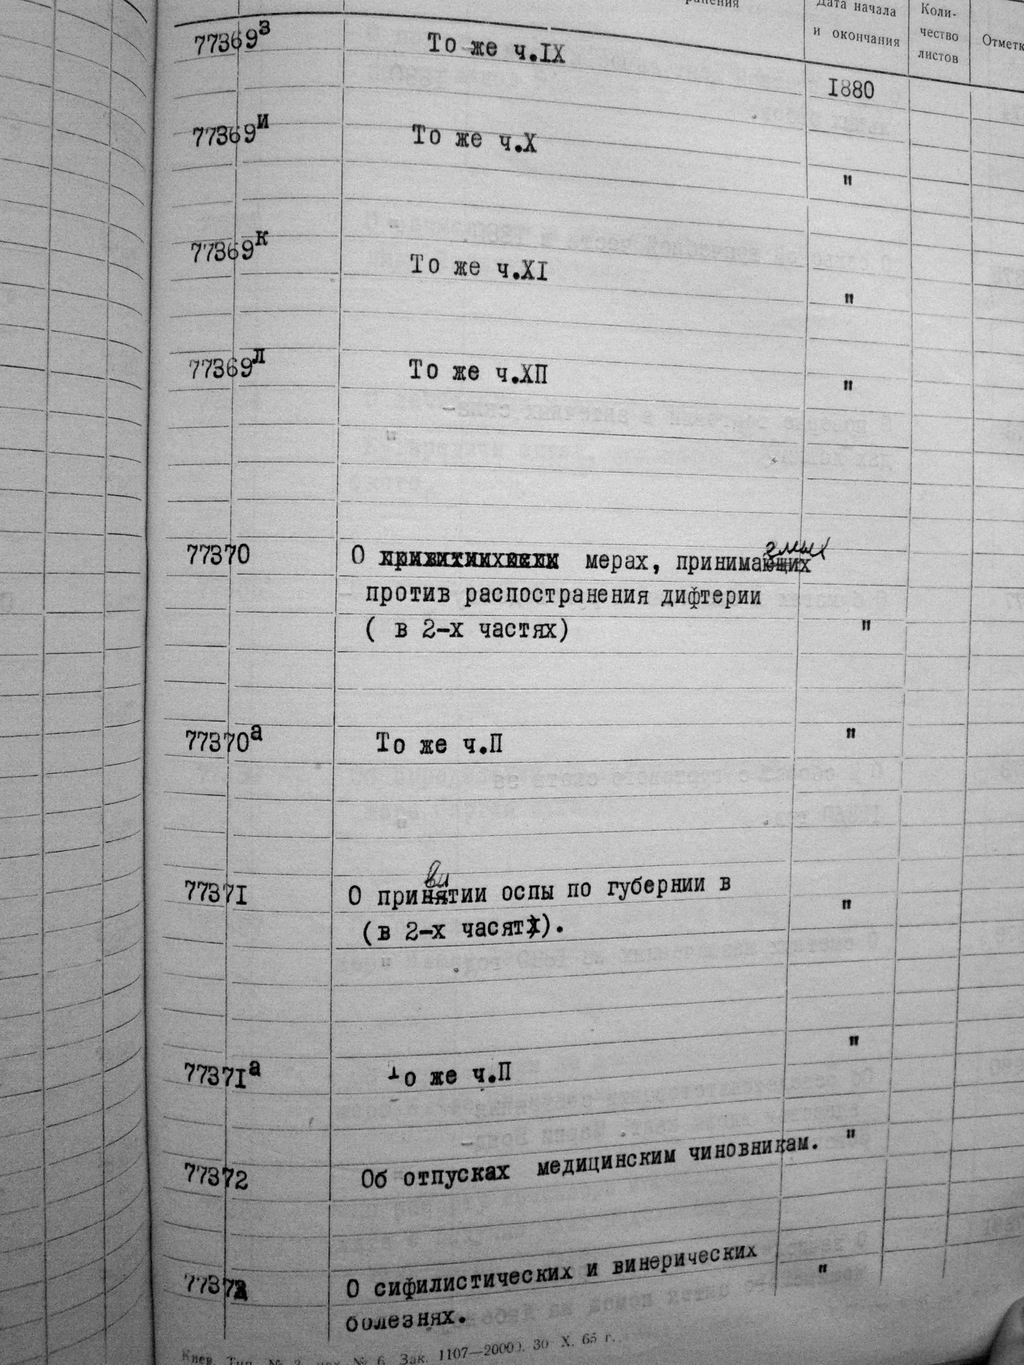 Дата начала и окончания
Коли-
чество
листов
77369з То же ч.IX 1880
77369и То же ч.X "
77369к То же ч.XI "
77369л То же ч.ХП "
77370 О мерах, принимаемых
против распостранения дифтерии
( в 2-х частях) "
77370а То же ч.П "
77371 О привитии оспы по губернии в "
(в 2-х часят).
77371а То же ч.П "
77372 Об отпусках медицинским чиновникам. "
О сифилистических и винерических "
болезнях.
Киев. Тип. № 6. Зак. 1107—2000). 30 X. 65 г.